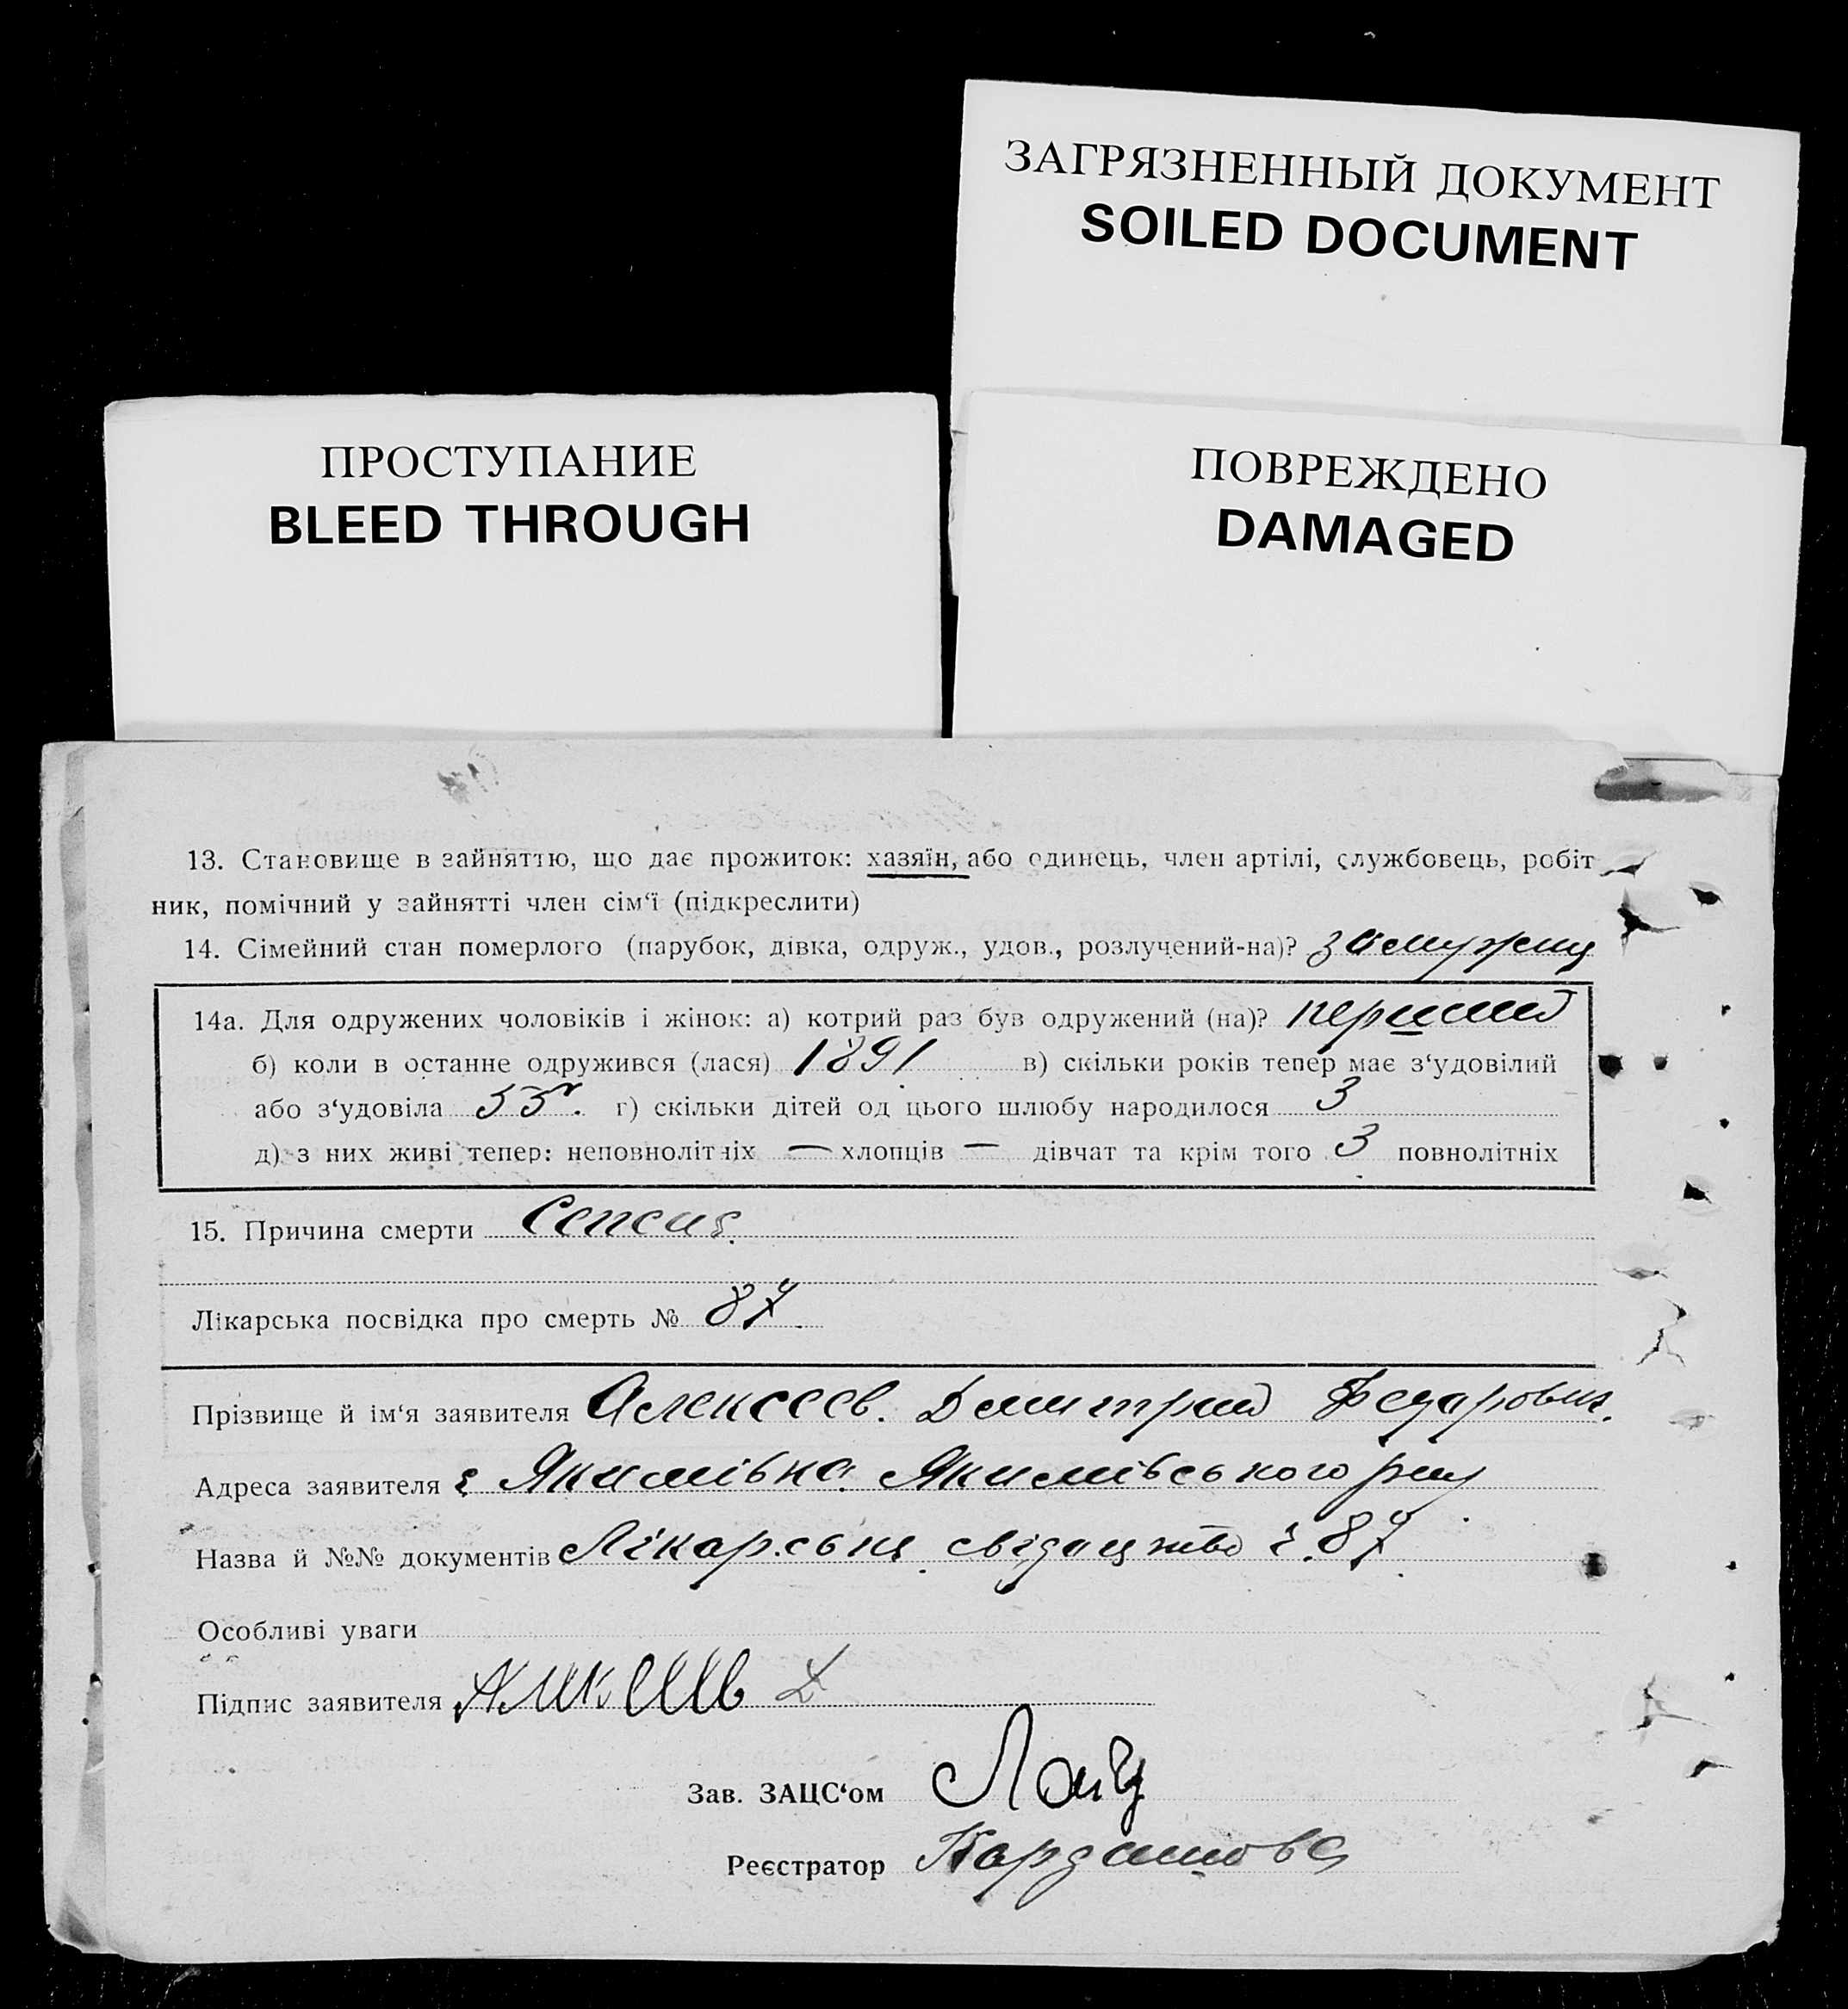 ЗАГРЯЗНЕННЫЙ ДОКУМЕНТ
SOILED DOCUMENT
ПРОСТУПАНИЕ
BLEED THROUGH
ПОВРЕЖДЕНО
DAMAGED
13. Становище в зайняттю, що дає прожиток: хазяїн, або одинець, член артілі, службовець, робіт
ник, помічний у зайнятті член сім‘ї (підкреслити)
14. Сімейний стан померлого (парубок, дівка, одруж., удов., розлучений-на)? замужня
14а. Для одружених чоловіків і жінок: а) котрий раз був одружений (на)? перший
б) коли в останне одружився (лася) 1891 в) скільки років тепер має з‘удовілий
або з‘удовіла 55 г) скільки дітей од цього шлюбу народилося 3
д) з них живі тепер: неповнолітніх — хлопців — дівчат та крім того 3 повнолітніх
15. Причина смерти Сепсис
Лікарська посвідка про смерть № 87
Прізвище й ім‘я заявителя Алексеев Дмитрий Федарович
Адреса заявителя с Якимівка Якимівського р-ну
Назва й №№ документів Лікарське свідоцтво 87
Особливі уваги
Підпис заявителя
Зав. ЗАЦС‘ом
Реєстратор Кардашова